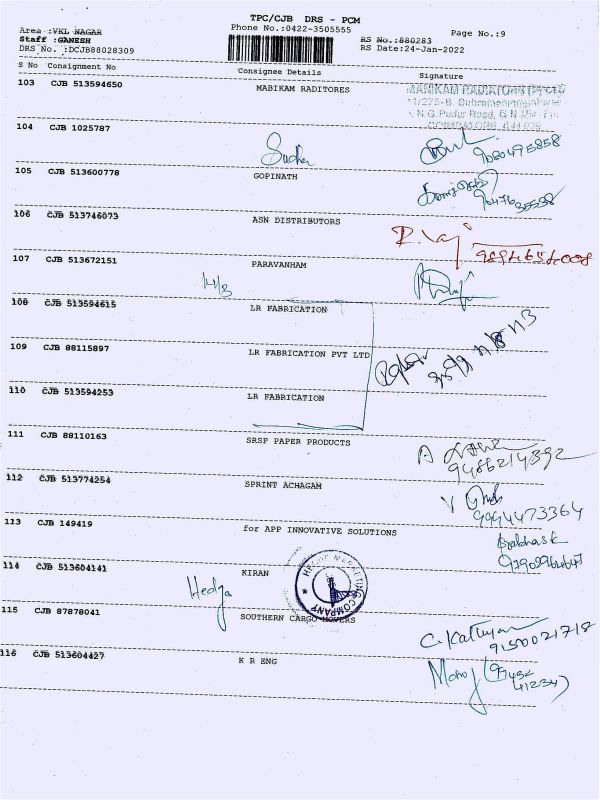 TPC/CJB DRS - PCM
Area :VKL NAGAR Phone No.:0422-3505555 Page No.:9
Staff :GANESH RS No.:880283
DRS No. :DCJB88028309 RS Date:24-Jan-2022
S No Consignment No Consignee Details Signature
103 CJB 513594650 MABIKAM RADITORES
MANIKAM RADIATORS
COIMBATORE
104 CJB 1025787
Sudha 9080495858
105 CJB 513600778 GOPINATH
106 CJB 513746073 ASN DISTRIBUTORS
9894656008
107 CJB 513672151 PARAVANHAM
14/3
108 CJB 513594615 LR FABRICATION
109 CJB 88115897 LR FABRICATION PVT LTD
110 CJB 513594253 LR FABRICATION
111 CJB 88110163 SRSP PAPER PRODUCTS
9486214392
112 CJB 513774254 SPRINT ACHAGAM
9994473364
113 CJB 149419 for APP INNOVATIVE SOLUTIONS
Prabhask
114 CJB 513604141 KIRAN
Hedga
115 CJB 87878041 SOUTHERN CARGO MOVERS
9150021718
116 CJB 513604427 K R ENG
Manoj